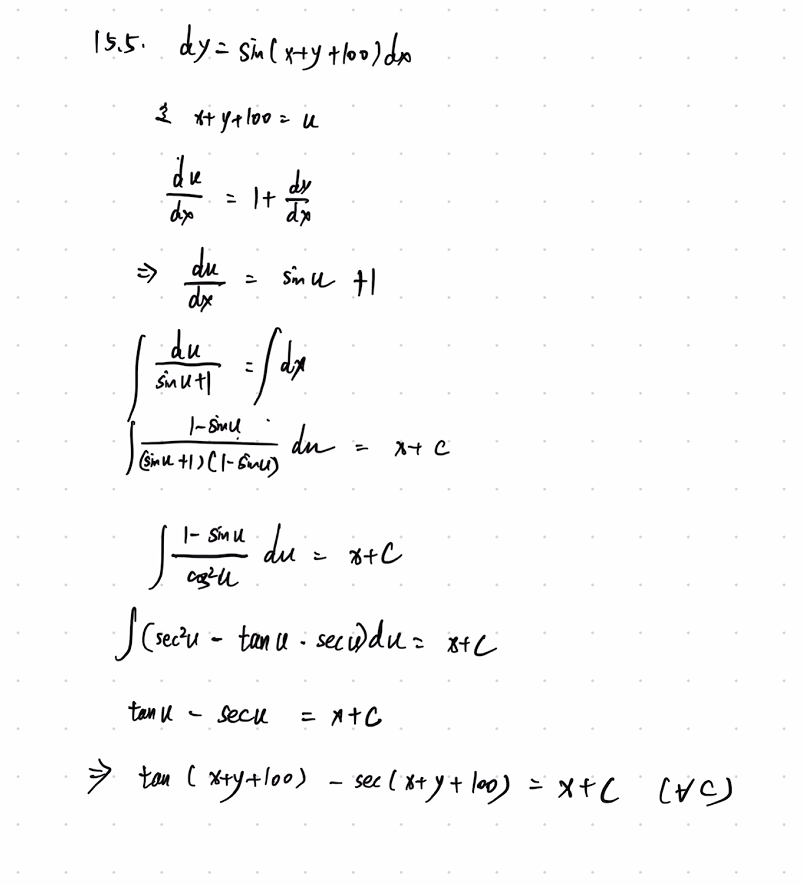 15.5. dy = sin(x+y+100)dx
令 x+y+100 = u
du/dx = 1 + dy/dx
⇒ du/dx = sin u + 1
∫ du/(sin u+1) = ∫ dx
∫ (1-sin u)/((sin u+1)(1-sin u)) du = x+C
∫ (1-sin u)/(cos²u) du = x+C
∫ (sec²u - tan u · sec u)du = x+C
tan u - sec u = x+C
⇒ tan(x+y+100) - sec(x+y+100) = x+C (∀C)